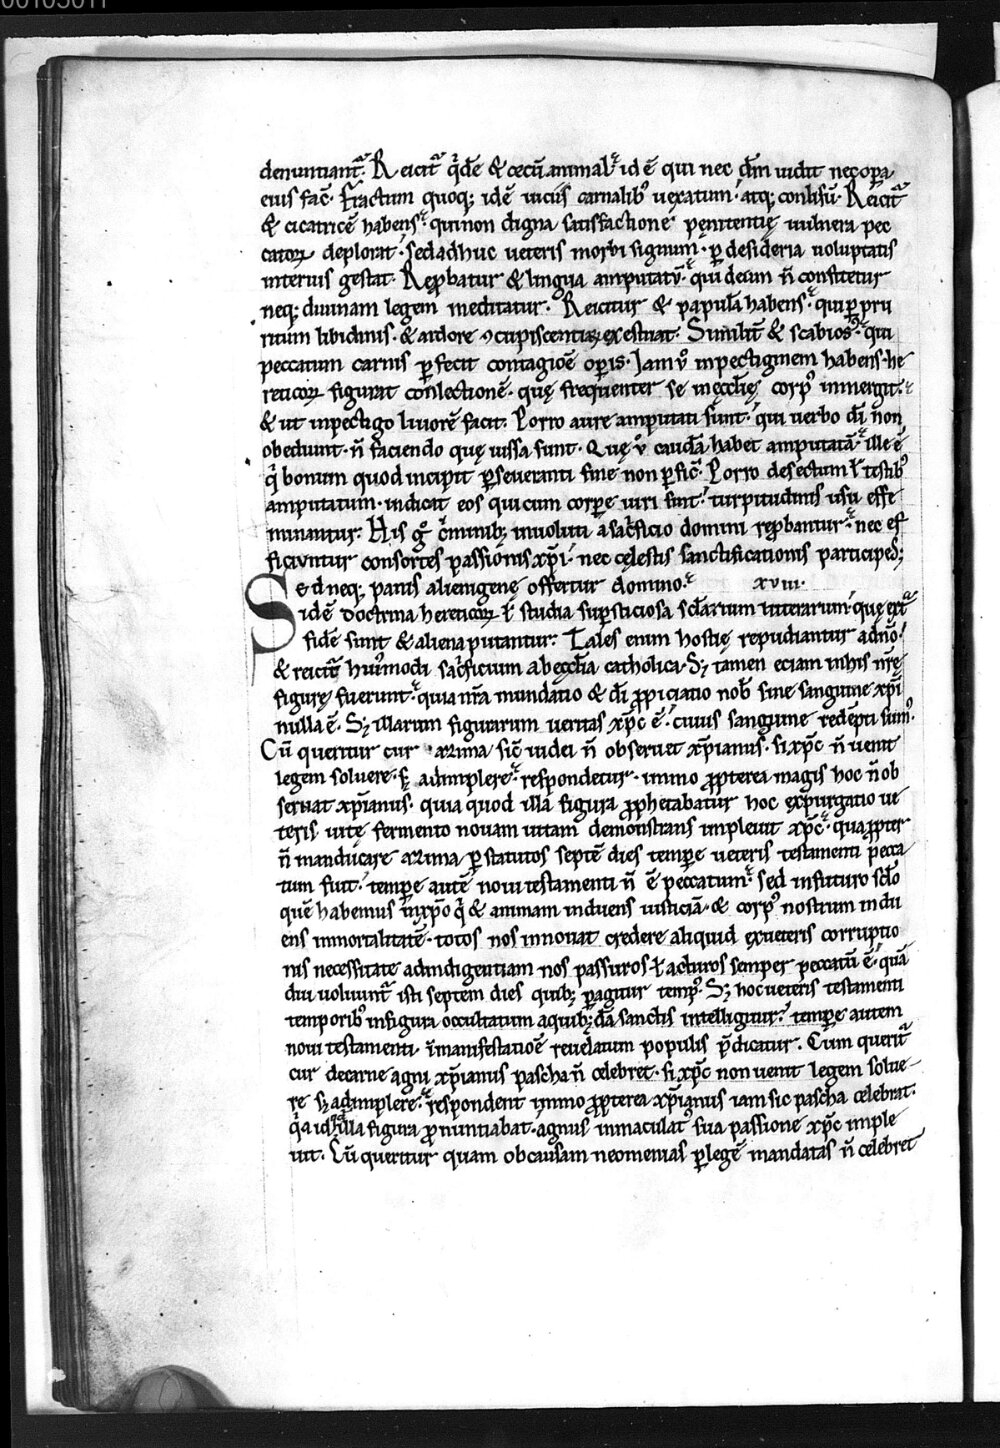 denuntiant᷑. Reicit᷑ q̇dē & cęcū animal. id ē qui nec dm̄ uidit nec opa
eius fac̄. Fractum quoq; idē uiciis carnalib᷒ uexatum. atq; conlisū. Reicit᷑
& cicatricē habens. qui non digna satisfactione pęnitentię uulnera pec
catoꝝ deplorat. sed adhuc ueteris morbi signum. ꝑ desideria uoluptatis
interius gestat. Reꝓbatur & lingua amputatū. qui deum n̄ confitetur
neq; diuinam legem meditatur. Reicitur & papulā habens. qui ꝑ pru
ritum libidinis. & ardore ꝯcupiscentię exestuat. Similit̄ & scabios᷒. qui
peccatum carnis ꝑfecit contagiōe oꝑis. Iam ů inpectiginem habens. he
reticoꝝ figurat conlectionē. quę frequenter se męcchię corp᷒ inmergit.
& ut inpectigo liuorē facit. Porro aure amputati sunt. qui uerbo dī non
obediunt. n̄ faciendo quę iussa sunt. Quę ů caudā habet amputatā. ille ē
q̇ bonum quod incipit ꝑseueranti fine non ꝑfic̄. Porro desectum ł testib᷒
amputatum. indicat eos qui cum corꝑe uiri sint. turpitudinis usu effe
minantur. His g̊ c̓minib; inuoluti a sac̓ficio domini reꝓbantur. nec ef
ficiuntur consortes passionis xp̄i. nec cęlestis sanctificationis participes;
Sed neq; panis alienigenę offertur domino. xviii.
idē doctrina hereticoꝝ ł studia suꝑsticiosa scl̄arium litterarum. quę ext᷑
fidē sunt & aliena putantur. Tales enim hostię repudiantur a dn̄o.
& reicit᷑ hui᷒modi sac̓ficium ab ęcclia catholica. S; tamen eciam in his nr̄ę
figurę fuerunt. quia nr̄a mundatio & dī ꝓpiciatio nob̄ sine sanguine xp̄i
nulla ē. S; illarum figurarum ueritas xp̄c ē. cuius sanguine redēpti sum᷒.
Cū queritur cur azima sic̄ iudei n̄ obseruet xp̄ianus. si xp̄c n̄ uenit
legem soluere. s; adimplere. respondetur. immo ꝓpterea magis hoc n̄ ob
seruat xp̄ianus. quia quod illa figura ꝓphetabatur hoc expurgatio ue
teris uitę fermento nouam uitam demonstrans impleuit xp̄c. quaꝓpter
n̄ manducare azima ꝑ statutos septē dies temꝑe ueteris testamenti pecca
tum fuit. temꝑe autē noui testamenti n̄ ē peccatum. sed in futuro sclo
quē habemus in xp̄o q̇ & animam induens iusticiā. & corp᷒ nostrum indu
ens inmortalitatē. totos nos innouat credere aliquid ex ueteris corruptio
nis necessitate ad indigentiam nos passuros ł acturos semper peccatū ē. quā
diu uoluunt᷑ isti septem dies quib; ꝑagitur temp᷒. S; hoc ueteris testamenti
temporib᷒ in figura occultatum a quib;dā sanctis intelligitur. temꝑe autem
noui testamenti. ī manifestatiōe reuelatum populis p̄dicatur. Cum querit᷑
cur de carne agni xp̄ianus pascha n̄ celebret. si xp̄c non uenit legem solue
re s; adimplere. respondent immo ꝓpterea xp̄ianus iam sic pascha celebrat.
q̇a id qđ illa figura ꝓnuntiabat. agnus inmaculat᷒ sua passione xp̄c imple
uit. Cū queritur quam ob causam neomenias ꝑ legē mandatas n̄ celebret